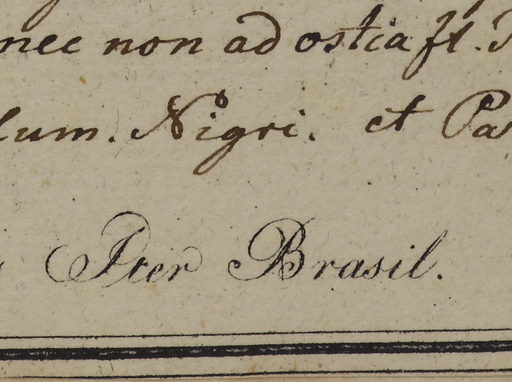 nec non ad ostia fl.
lum. Nigri. et Pa
Iter Brasil.